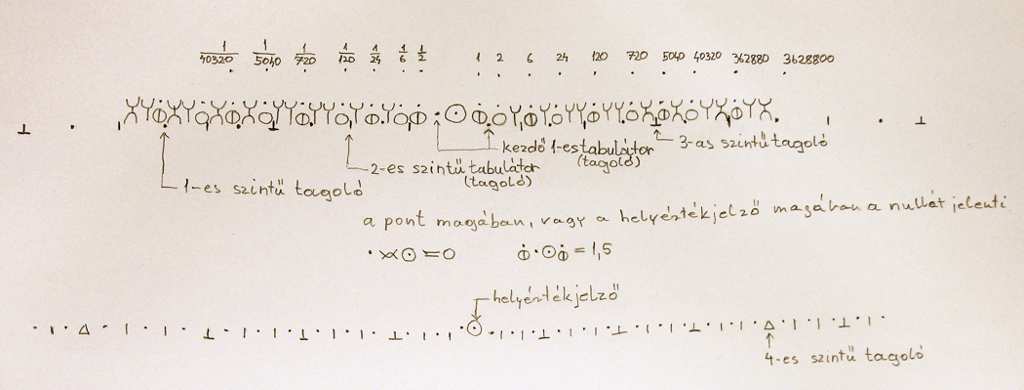 1/40320 1/5040 1/720 1/120 1/24 1/6 1/2 1 2 6 24 120 720 5040 40320 362880 3628800
kezdő 1-es tabulátor
(tagoló)
3-as szintű tagoló
2-es szintű tabulátor
(tagoló)
1-es szintű tagoló
a pont magában, vagy a helyértékjelző magában a nullát jelenti
= 0
= 1,5
helyértékjelző
4-es szintű tagoló